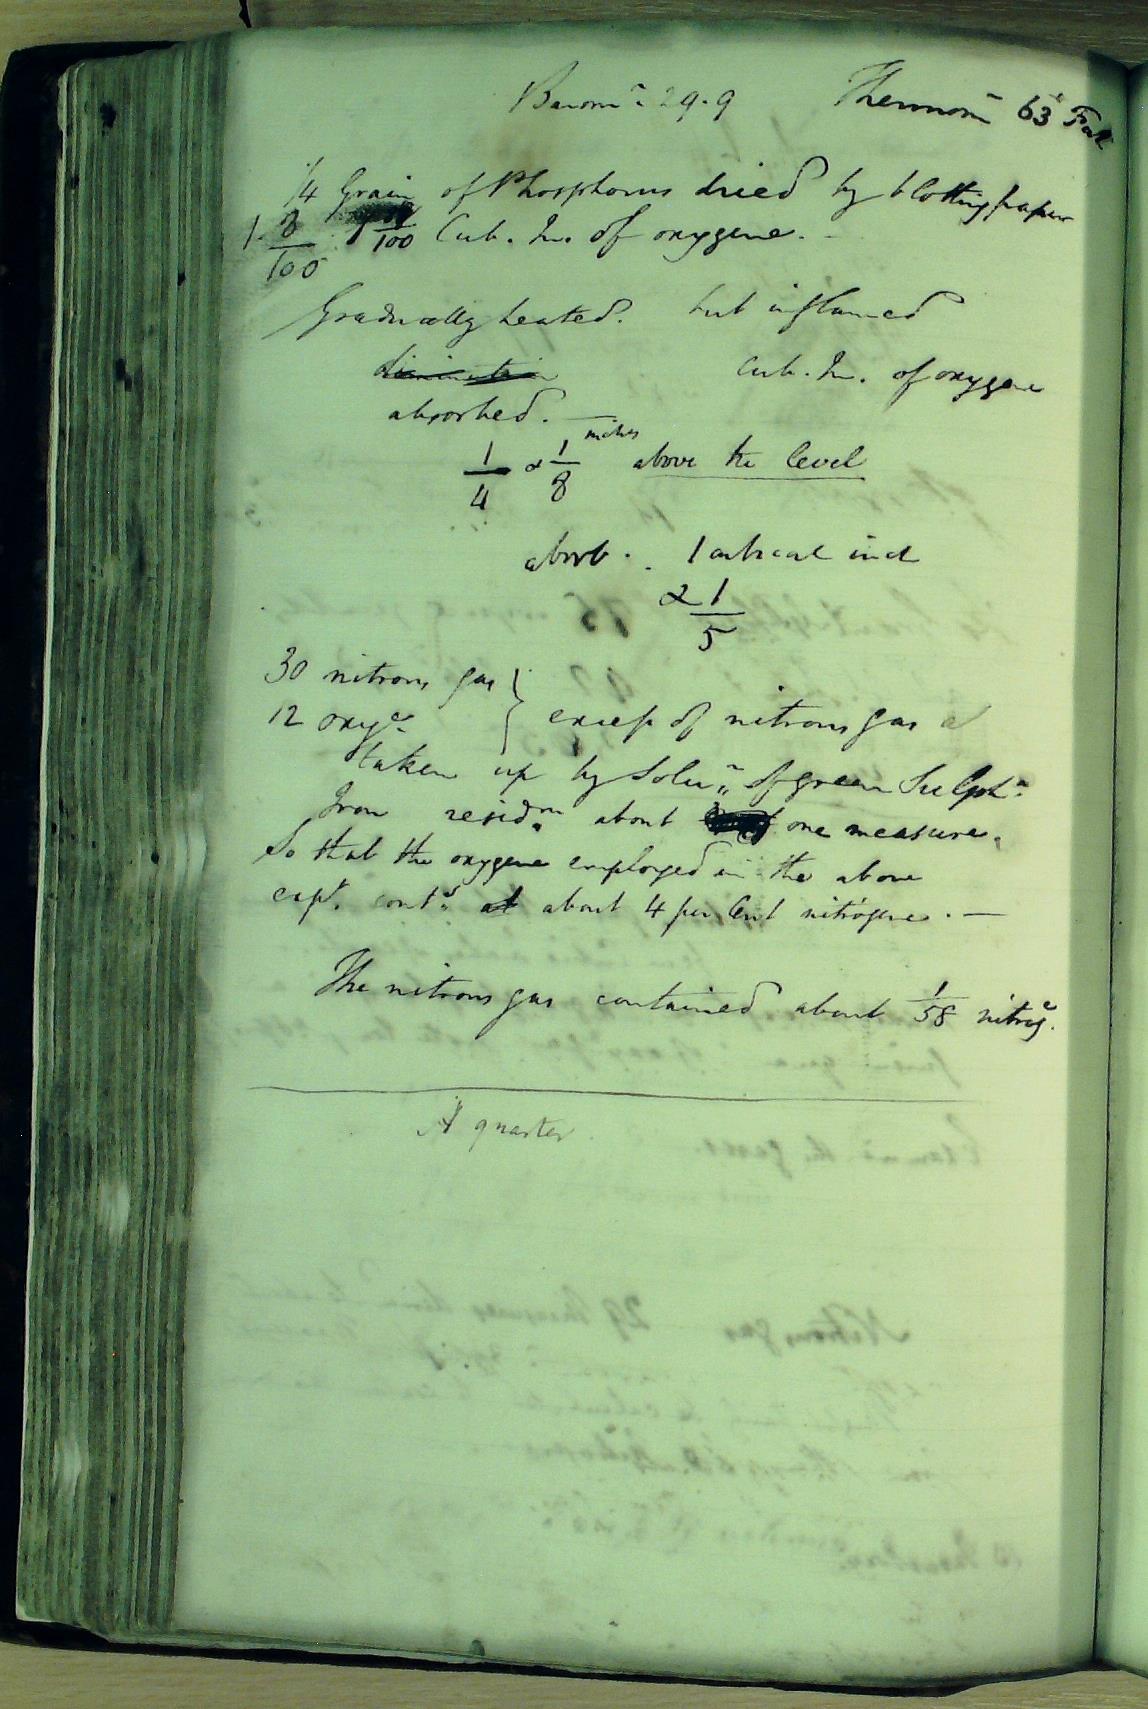 Barom^r. 29.9 Thermom^r 63 Fah
1/4 Grain of Phosphorus dried by blotting paper
1. 8/100 Cub. In. of oxygene. -
Gradually heated. but inflamed
diminution Cub. In. of oxygene
absorbed. —
1/4 & 1/8 inches above the level
absorb. . 1 cubical inch
& 1/5
30 nitrous gas }
12 oxy^e. } excess of nitrous gas
taken up by Solu^n. of green Sulph^e.
Iron resid^m. about one measure.
So that the oxygene employed in the above
exp^t. cont^d. about 4 per Cent nitrogene. —
The nitrous gas contained about 1/58 nitrog^e.
A quarter